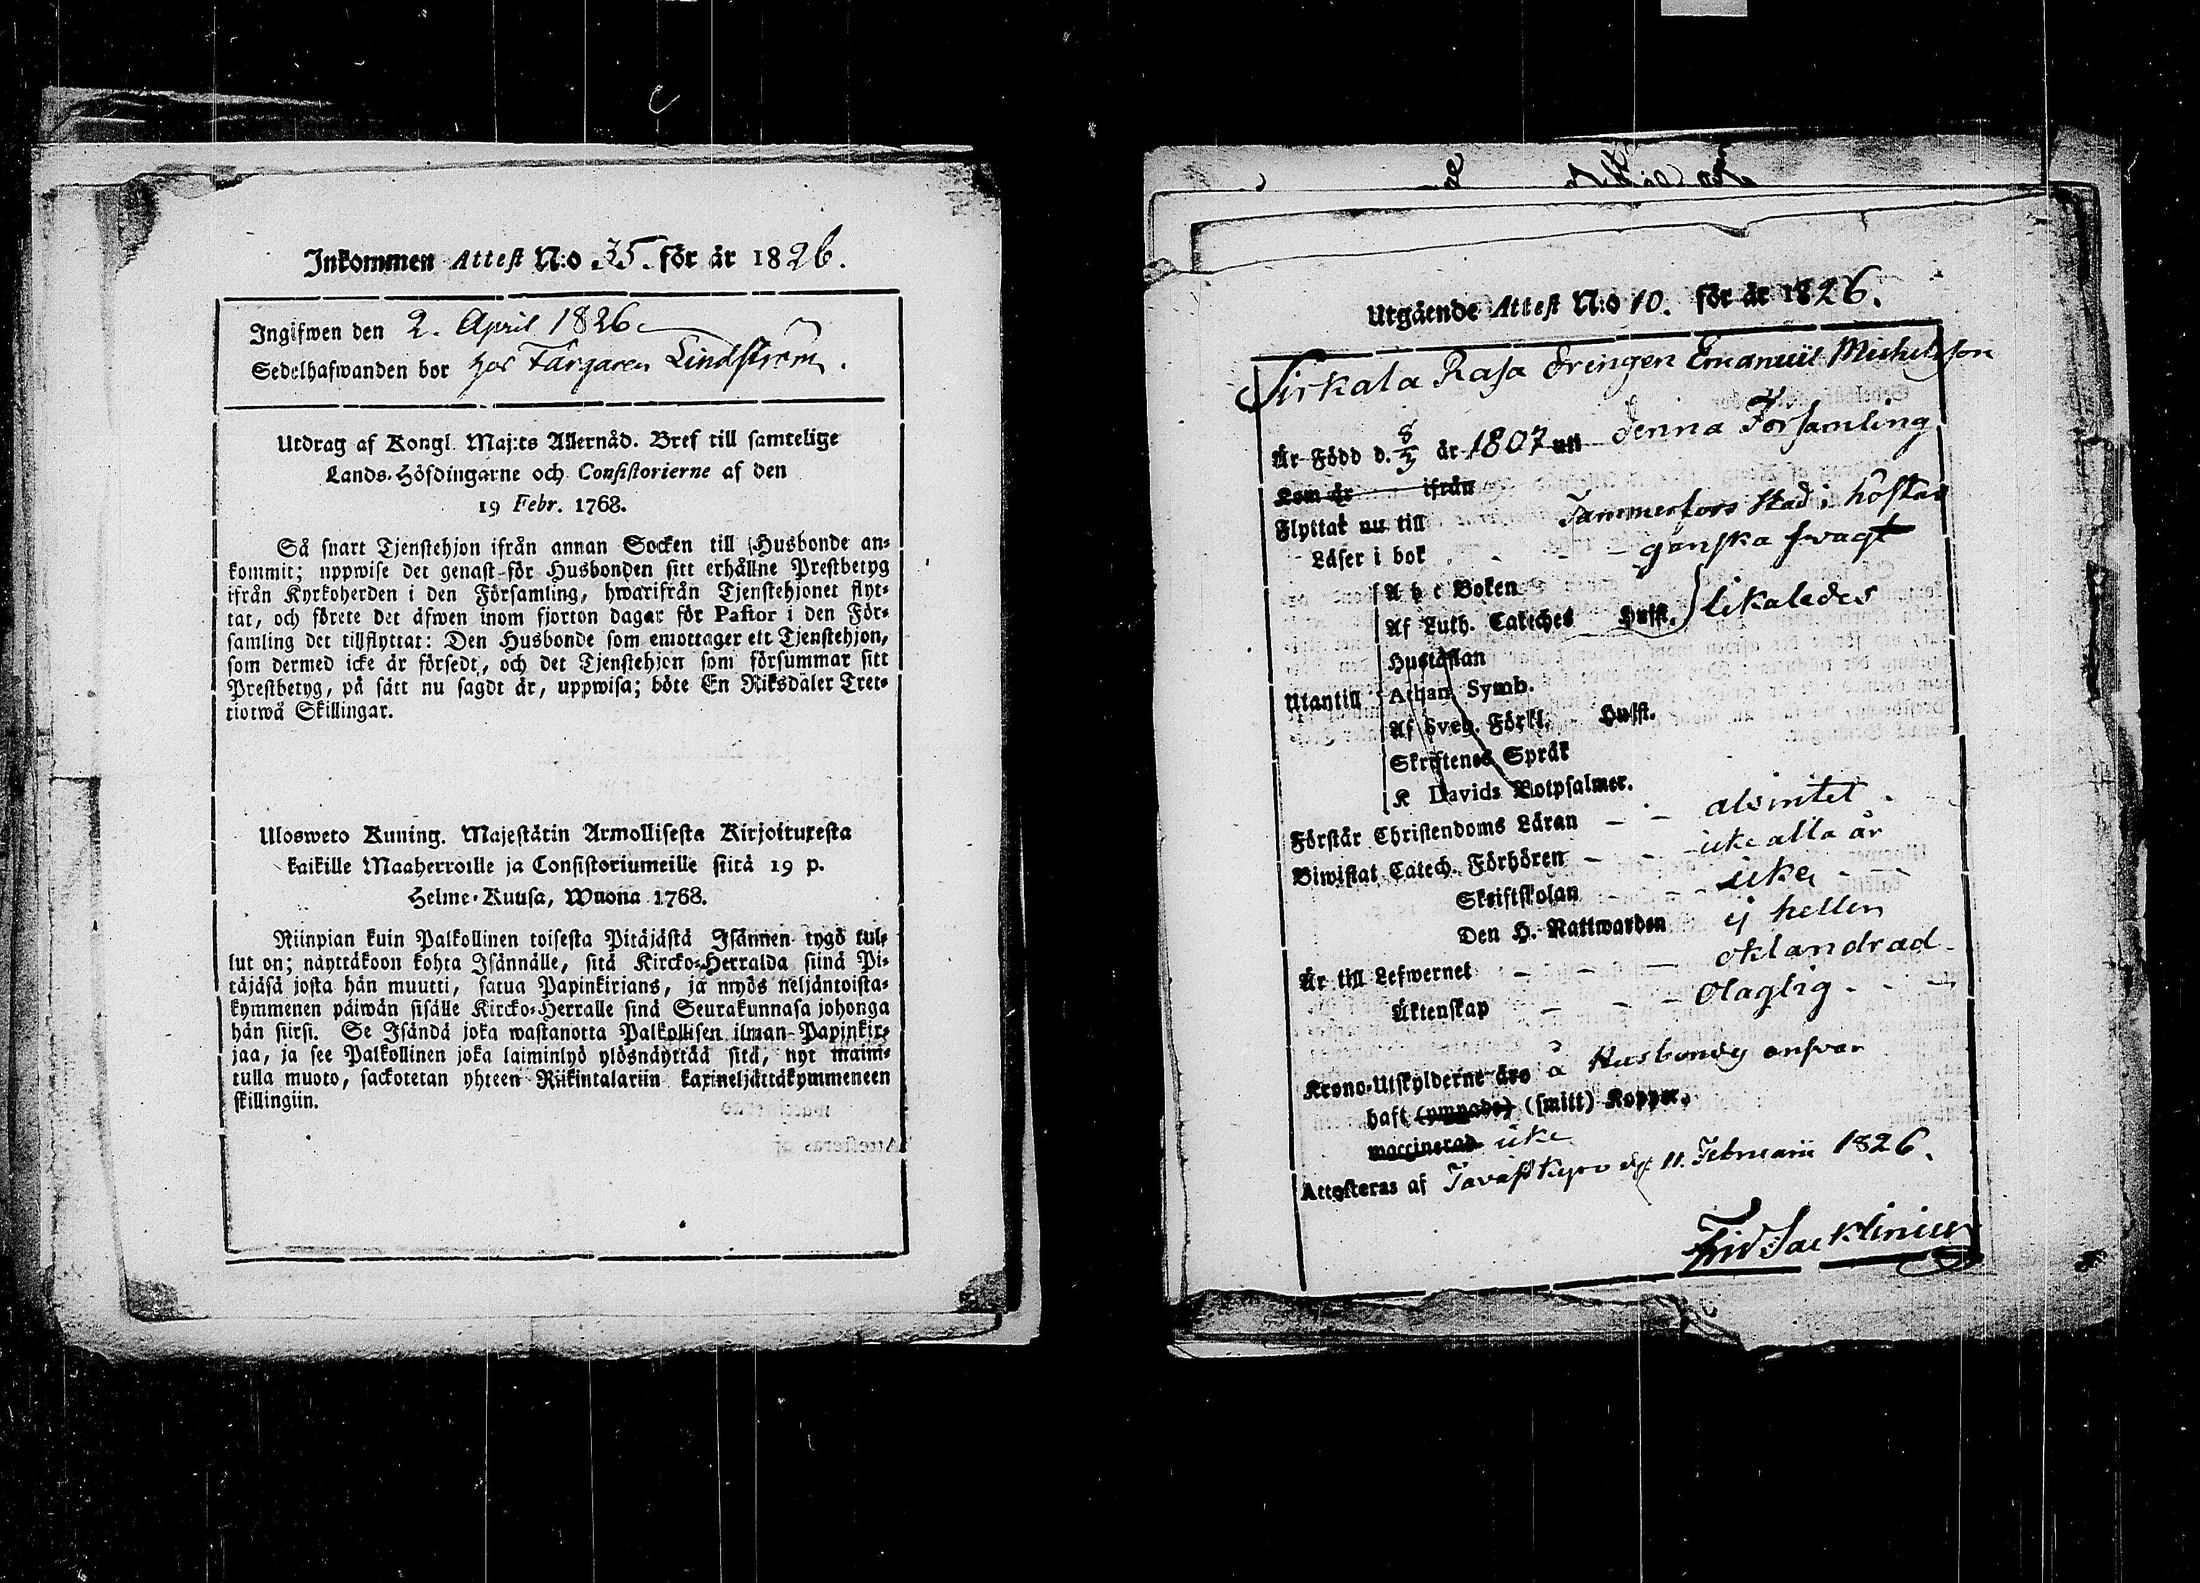 Inkommen Attest N:o 35. för år 1826.
Ingifwen den 2. April 1826
Sedelhafwanden bor hos Färgaren Lindström.
Utdrag af Kongl. Maj:ts Allernåd. Bref till samtelige
Lands-Höfdingarne och Consistorierne af den
19 Febr. 1768.
Så snart Tjenstehjon ifrån annan Socken till Husbonde an-
kommit; uppwise det genast för Husbonden sitt erhållne Prestbetyg
ifrån Kyrkoherden i den Församling, hwarifrån Tjenstehjonet flyt-
tat, och förete det äfwen inom fjorton dagar för Pastor i den För-
samling det tillflyttat: Den Husbonde som emottager ett Tjenstehjon,
som dermed icke är försedt, och det Tjenstehjon som försummar sitt
Prestbetyg, på sätt nu sagdt är, uppwisa; böte En Riksdaler Tret-
tiotwå Skillingar.
Ulosweto Kuning. Majestätin Armollisesta Kirjoituxesta
kaikille Maaherroille ja Consistoriumeille siitä 19 p.
Helme-Kuusa, Wuona 1768.
Niinpian kuin Palkollinen toisesta Pitäjästä Isännen tygö tul-
lut on; näyttäkoon kohta Isännälle, sitä Kircko-Herralda siinä Pi-
täjäsä josta hän muutti, saatua Papinkirjans, ja myös neljäntoista-
kymmenen päiwän sisälle Kircko-Herralle sinä Seurakunnasa johonga
hän siirsi. Se Isändä joka wastanotta Palkollisen ilman Papinkir-
jaa, ja see Palkollinen joka laiminlyö ylösnäyttää sitä, nyt maini-
tulla muoto, sackotetan yhteen Riikintalariin kaxineljättäkymmeneen
skillingiin.
Utgående Attest N:o 10. för år 1826.
Sirkala Rasa Drengen Emanuel Michelsson
Är Född d. 8/3 år 1807 uti denna Församling
Kom år ifrån
Flyttat nu till Tammerfors Stad i höstas
Läser i bok ganska swagt
A b c Boken
Af Luth. Cateches Hufst. likaledes
Hustaflan
Utantill Athan. Symb.
Af Sveb. Förkl. Hufst.
Skriftenes Språk
K Davids Botpsalmer.
Förstår Christendoms Läran alsintet
Biwistat Catech. Förhören icke alla år
Skriftskolan icke
Den H. Nattwarden ej heller
Är till Lefwernet oklandrad
Äktenskap Olaglig
Krono-Utskylderne äro å Husbondes answar
haft (ympade) (smitt) Koppor.
waccinerad icke
Attesteras af Tavastkyro d. 11. Februarii 1826.